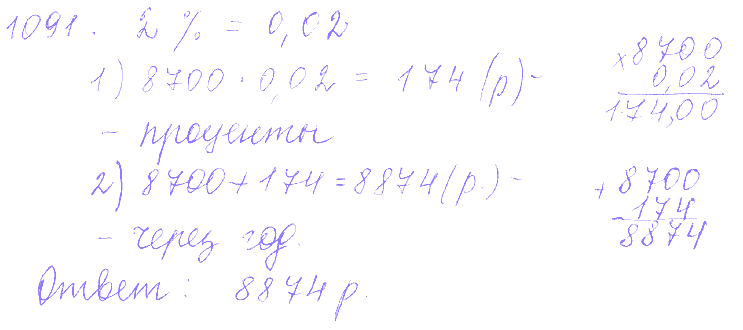 1091. 2 % = 0,02
1) 8700 · 0,02 = 174 (р) -
- проценты
2) 8700 + 174 = 8874 (р.) -
- через год.
Ответ: 8874 р.
× 8700
0,02
174,00
+ 8700
174
8874